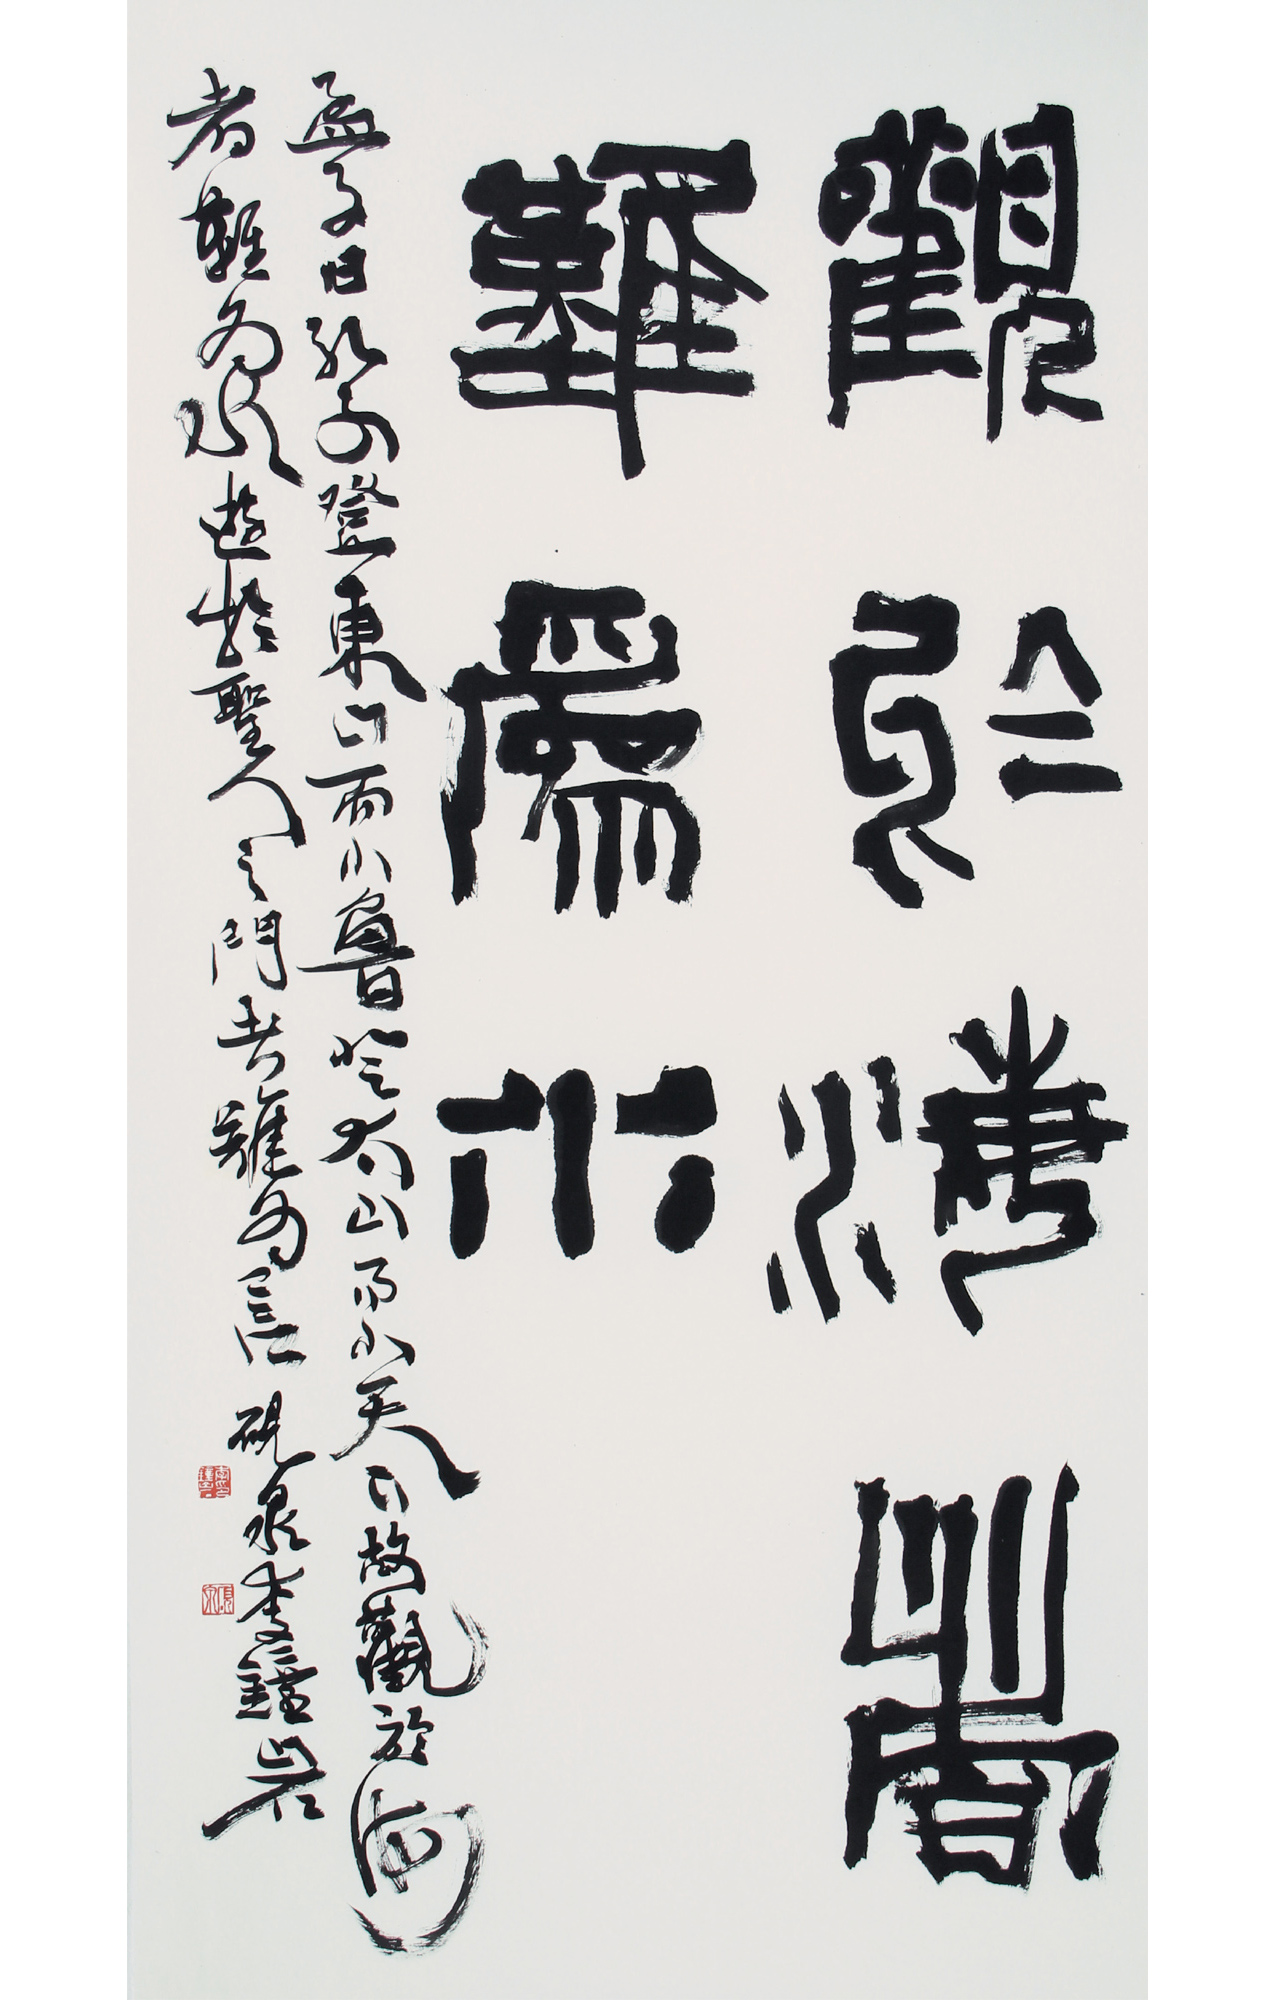 觀於海者
難爲水
孟子曰孔子登東山而小魯登太山而小天下故觀於海
者難為水遊於聖人之門者難為言 硯泉李鐘